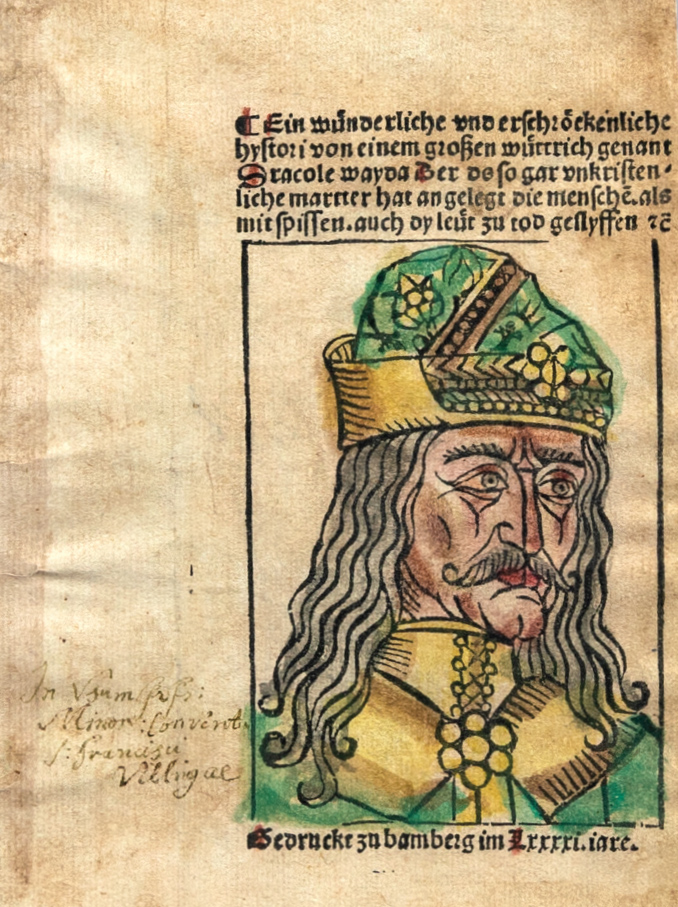 Ein wűnderliche vnd erschröckenliche
hystori von einem großen wűttrich genant
Dracole wayda Der do so gar vnkristen-
liche martter hat angelegt die menschē. als
mit spissen. auch dy leűt zu tod geslyffen ⁊c̄
In Vsum ffr͂:
Minor: Convent.
S: Francisci
Villingae
Gedruckt zu bamberg im Lxxxxi. iare.